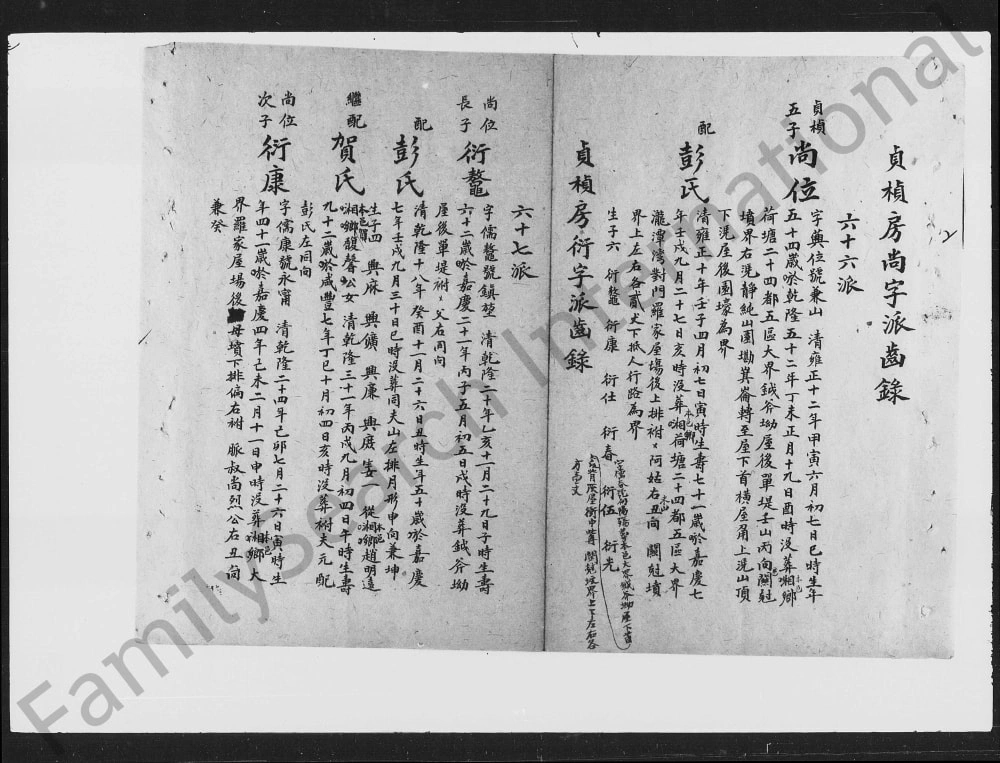 貞楨房尚字派齒錄
六十六派
貞楨
五子
尚位
字奠位號兼山 清雍正十二年甲寅六月初七日巳時生年
五十四歲於乾隆五十二年丁未正月十九日酉時没葬湘鄉
荷塘二十四都五區大界鉞斧坳屋後單堤壬山丙向關尅
墳界右洗靜純山圍墈箕崙轉至屋下首橫屋角上洗山頂
下洗屋後圍壕為界
配
彭氏
清雍正十年壬子四月初七日寅時生壽七十一歲於嘉慶七
年壬戌九月二十七日亥時没葬湘荷塘二十四都五區大界
瀧潭灣對門羅家屋場後上排祔阿姑右丑向 關尅墳
界上左右各貳丈下抵人行路為界
生子六 衍鼇 衍康 衍仕 衍春 衍伍 衍光
方壹丈
貞楨房衍字派齒錄
六十七派
尚位
長子
衍鼇
字儒鼇號鎮堃 清乾隆二十年乙亥十一月二十九日子時生壽
六十二歲於嘉慶二十一年丙子五月初五日戌時没葬鉞斧坳
屋後單堤祔父右同向
配
彭氏
清乾隆十八年癸酉十一月二十六日丑時生年五十歲於嘉慶
七年壬戌九月三十日巳時没葬同夫山左排月形申向兼坤
生子四 興麻 興鑛 興廉 興庭 女一 從湘鄉趙明遠
繼配
賀氏
湘鄉馥聲公女 清乾隆三十一年丙戌九月初四日午時生壽
九十二歲於咸豐七年丁巳十月初四日亥時没葬祔夫元配
彭氏左同向
尚位
次子
衍康
字儒康號永甯 清乾隆二十四年己卯七月二十六日寅時生
年四十一歲於嘉慶四年己未二月十一日申時没葬湘鄉大
界羅家屋場後母墳下排偏右祔 脈叔尚烈公右丑向
兼癸